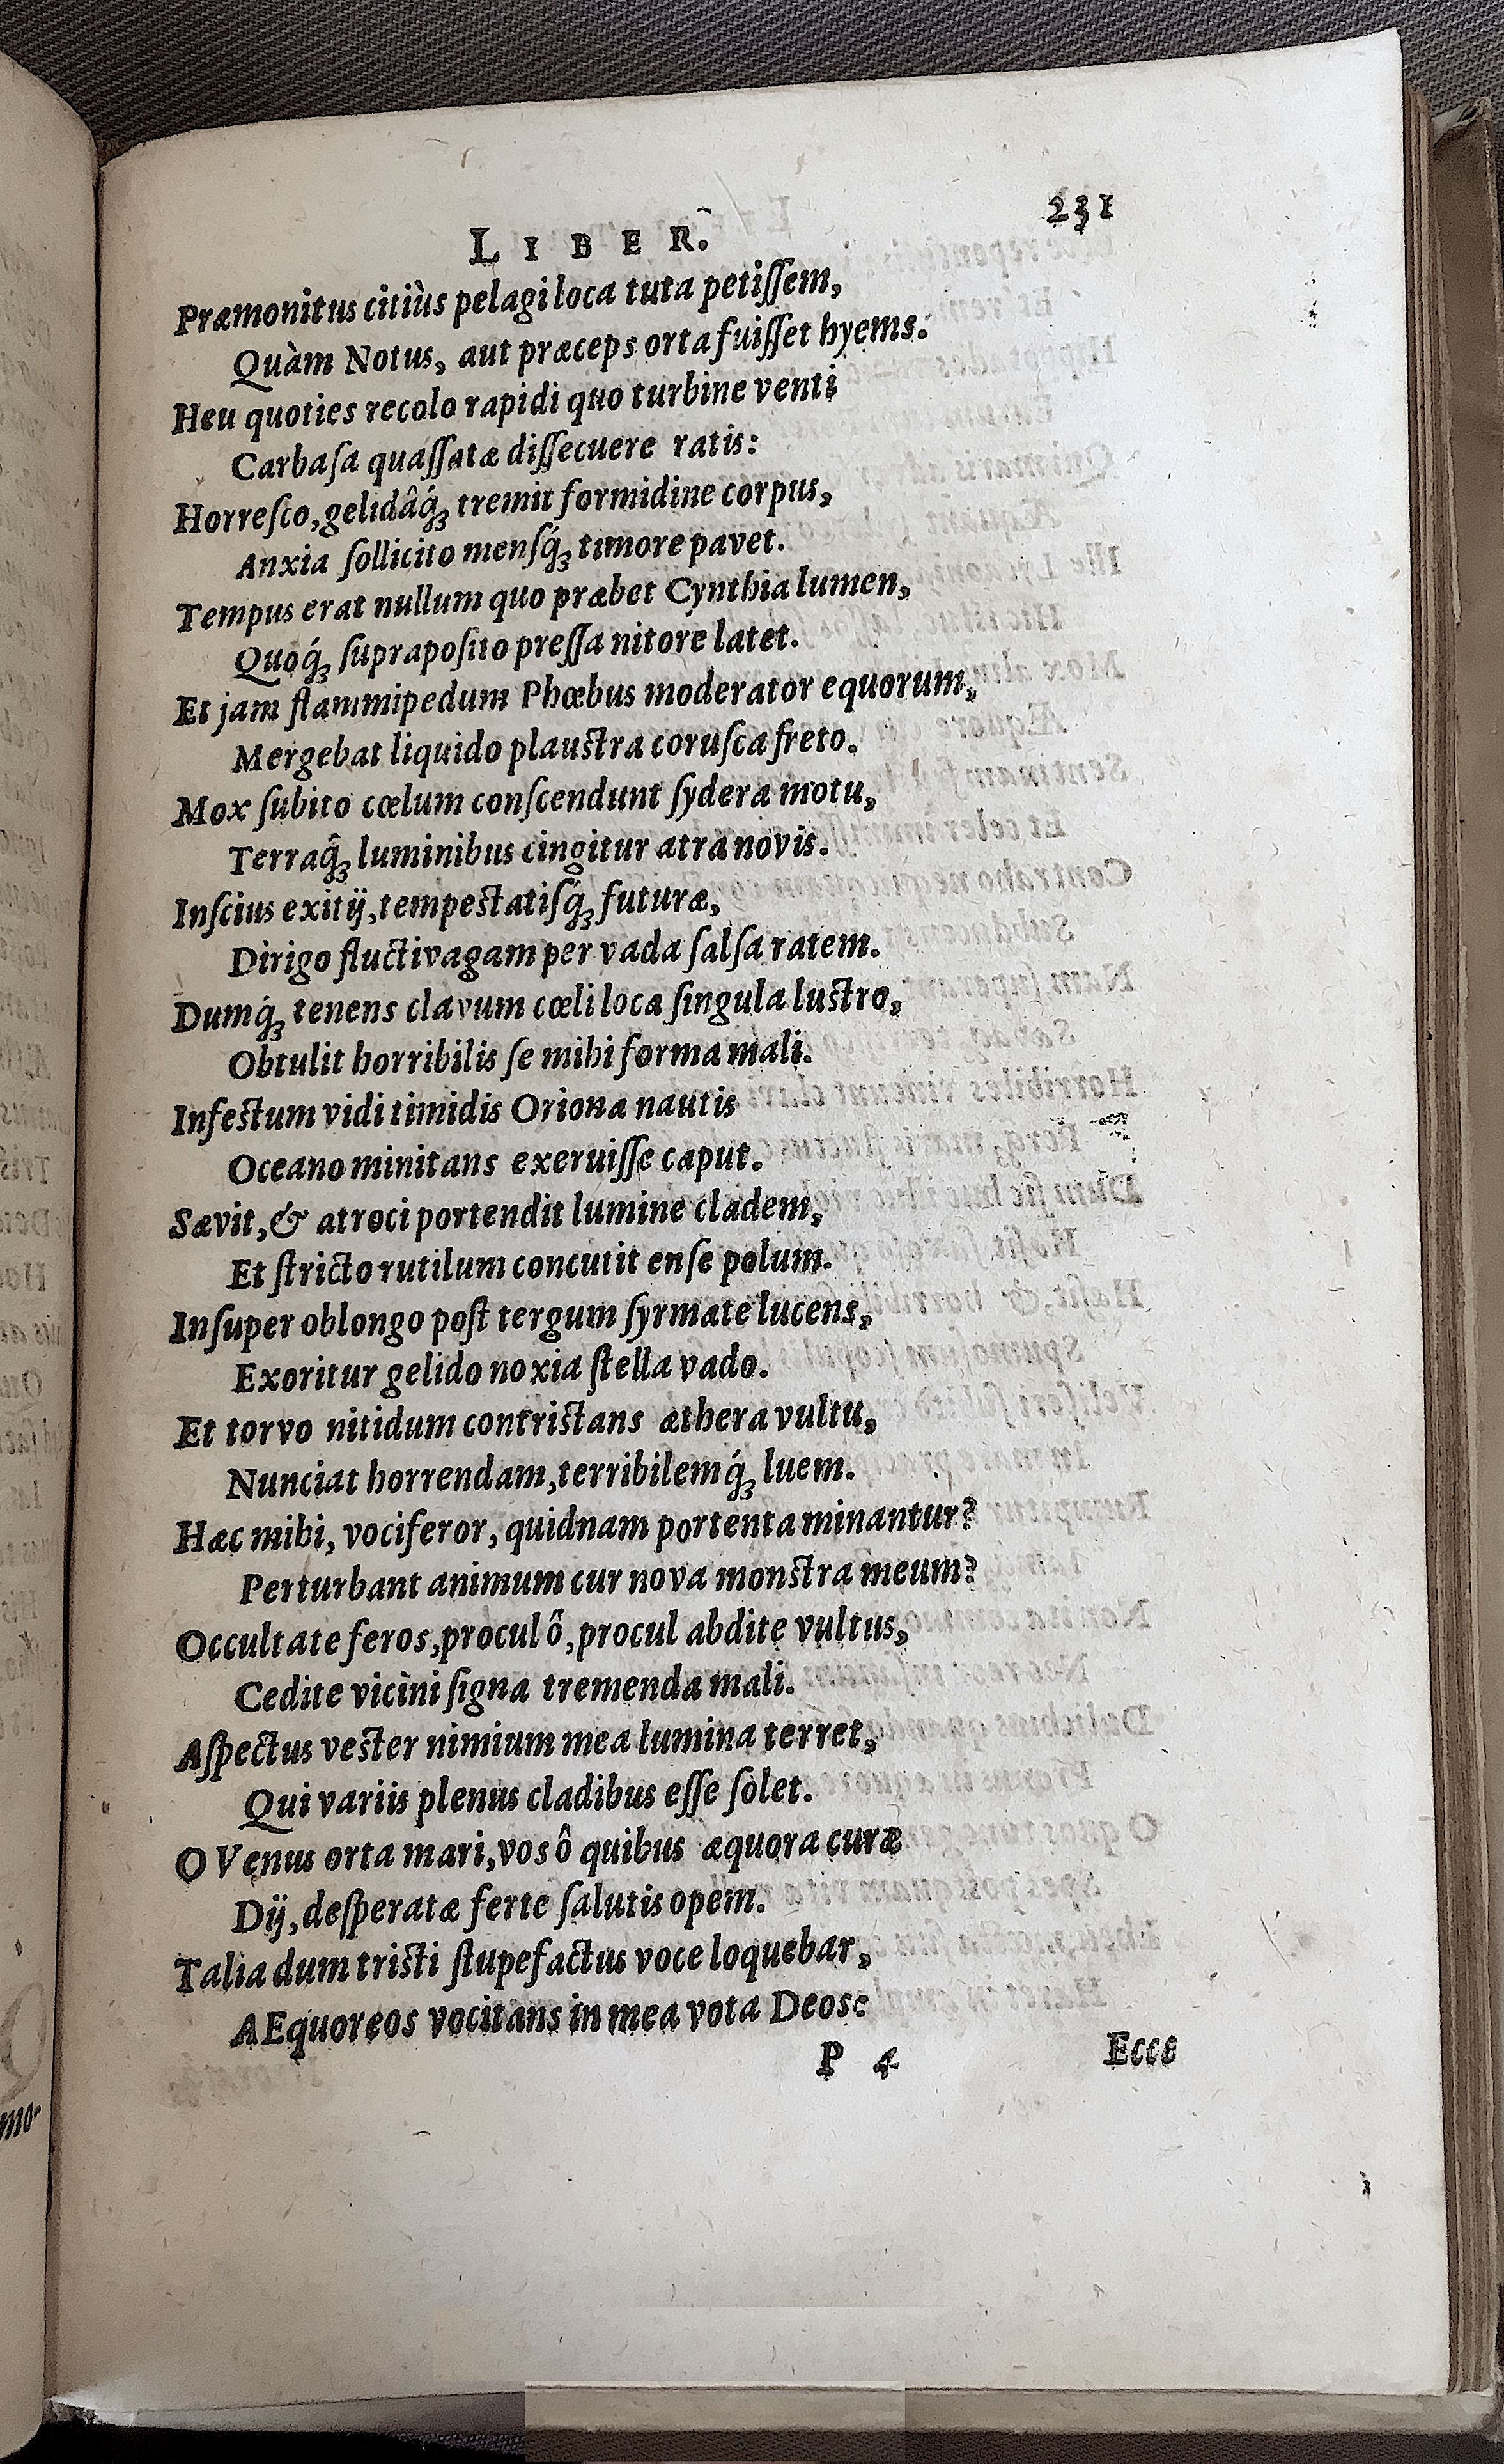 LIBER. 231
Præmonitus citiùs pelagi loca tuta petiſſem,
Quàm Notus, aut præceps orta fuiſſet hyems.
Heu quoties recolo rapidi quo turbine venti
Carbaſa quaſſatæ diſſecuere ratis:
Horreſco, gelidâq́ꝫ tremit formidine corpus,
Anxia ſollicito menſq́ꝫ timore pavet.
Tempus erat nullum quo præbet Cynthia lumen,
Quoq́ꝫ ſuprapoſito preſſa nitore latet.
Et jam flammipedum Phœbus moderator equorum,
Mergebat liquido plauſtra coruſca freto.
Mox ſubito cœlum conſcendunt ſydera motu,
Terraq̂ꝫ luminibus cingitur atra novis.
Inſcius exitij, tempeſtatiſq́ꝫ futuræ,
Dirigo fluctivagam per vada ſalſa ratem.
Dumq́ꝫ tenens clavum cœli loca ſingula luſtro,
Obtulit horribilis ſe mihi forma mali.
Infeſtum vidi timidis Oriona nautis
Oceano minitans exeruiſſe caput.
Sævit, & atroci portendit lumine cladem,
Et ſtricto rutilum concutit enſe polum.
Inſuper oblongo poſt tergum ſyrmate lucens,
Exoritur gelido noxia ſtella vado.
Et torvo nitidum contriſtans æthera vultu,
Nunciat horrendam, terribilemq́ꝫ luem.
Hæc mihi, vociferor, quidnam portenta minantur?
Perturbant animum cur nova monſtra meum?
Occultate feros, procul ô, procul abdite vultus,
Cedite vicìni ſigna tremenda mali.
Aſpectus veſter nimium mea lumina terret,
Qui variis plenus cladibus eſſe ſolet.
O Venus orta mari, vos ô quibus æquora curæ
Dij, deſperatæ ferte ſalutis opem.
Talia dum triſti ſtupefactus voce loquebar,
AEquoreos vocitans in mea vota Deos:
P 4 Ecce
mo-